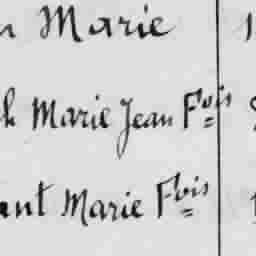 Marie
Marie Jean Fois
ant Marie Fois